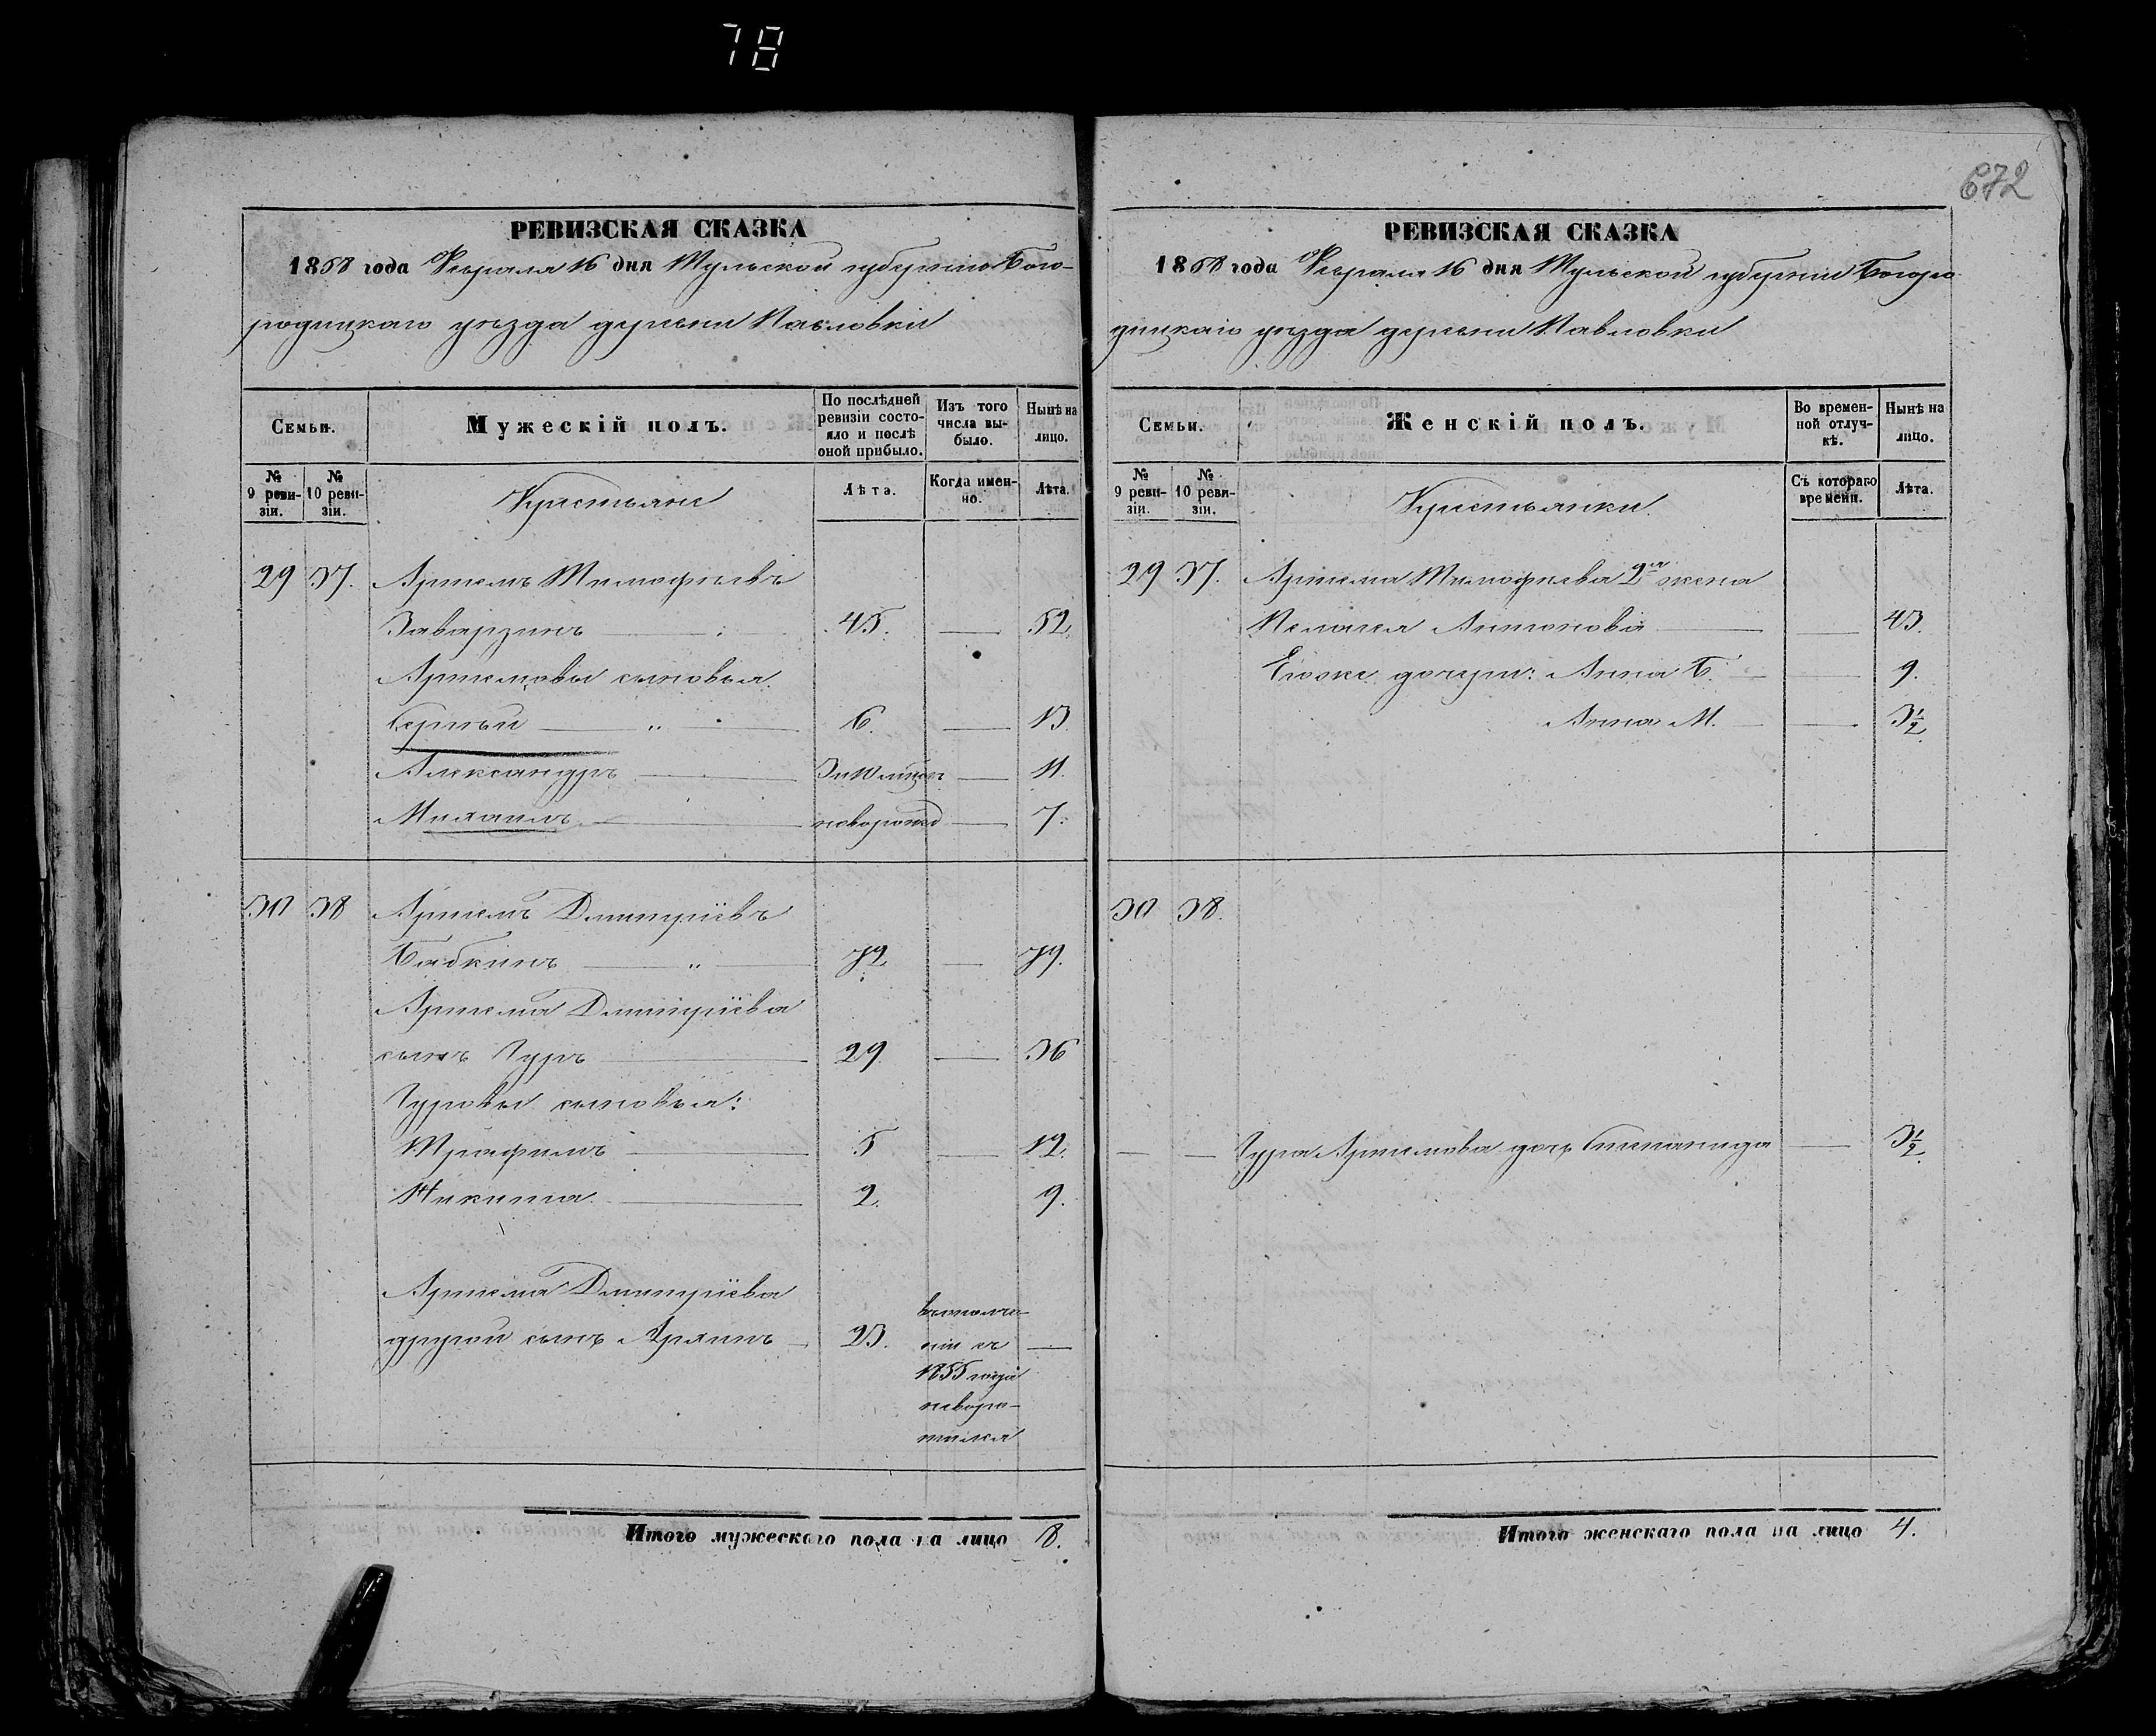 78
672
РЕВИЗСКАЯ СКАЗКА
1858 года Февраля 16 дня Тульской губернии Бого-
родицкаго уѣзда деревни Павловки
Семьи.
Мужескій полъ.
По послѣдней ревизіи состояло и послѣ оной прибыло.
Изъ того числа выбыло.
Нынѣ на лицо.
№ 9 ревизіи.
№ 10 ревизіи.
Крестьяне
Лѣта.
Когда именно.
Лѣта.
29 37. Артемъ Тимофѣевъ
Заварзинъ 45. 52.
Артемовы сыновья:
Сергѣй 6. 13.
Александръ 11.
Михаилъ новорожд 7.
30 38 Артемъ Дмитріевъ
Бабкинъ 72 79.
Артема Дмитріева
сынъ Гуръ 29. 36
Гуровы сыновья:
Трофимъ 5 12.
Никита 2. 9.
Артема Дмитріева
другой сынъ Архипъ 23.
1855 года
Итого мужескаго пола на лицо 8.
РЕВИЗСКАЯ СКАЗКА
1858 года Февраля 16 дня Тульской губернии Богоро
дицкаго уѣзда деревни Павловки
Семьи.
Женскій полъ.
Во временной отлучкѣ.
Нынѣ на лицо.
№ 9 ревизіи.
№ 10 ревизіи.
Крестьянки.
Съ котораго времени.
Лѣта.
29 37. Артема Тимофѣева 2я жена
Пелагея Антонова 43.
Ево же дочери: Анна Б. 9.
Анна М. 3½
30 38.
Гура Артемова дочь Степанида 3½
Итого женскаго пола на лицо 4.